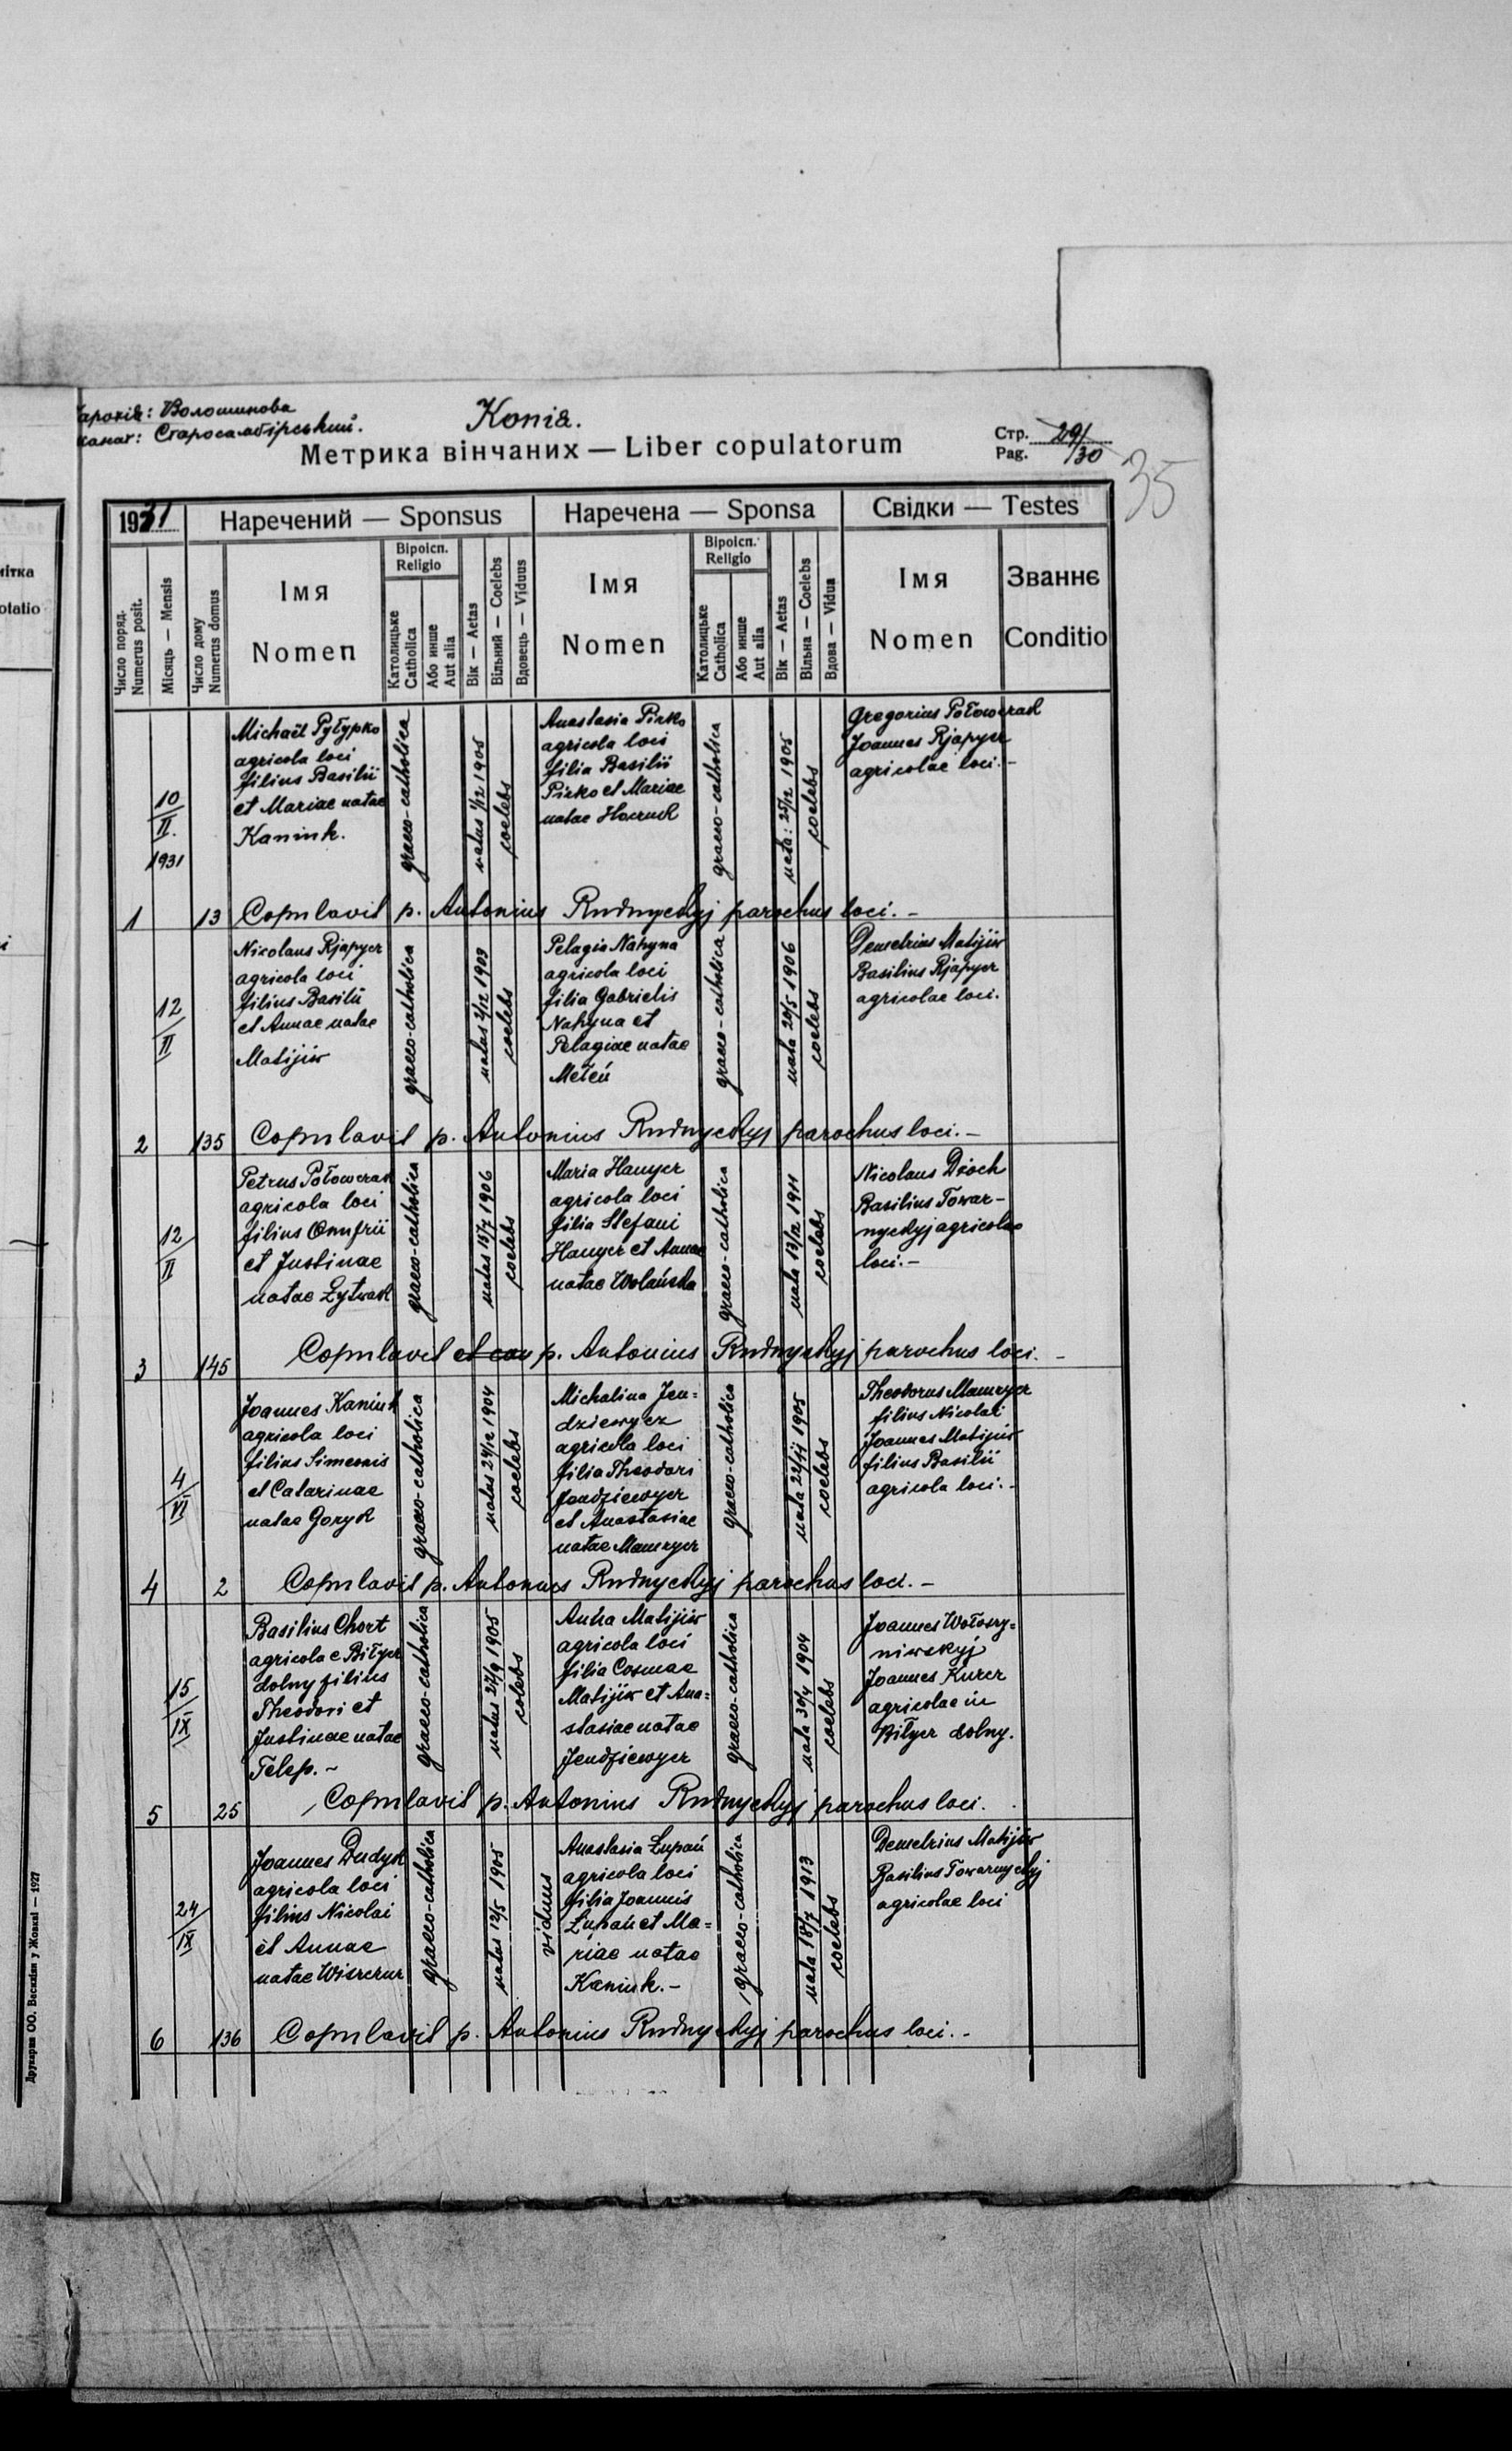 Парохія: Волошинова
Деканат: Старосамбірський.
Копія.
Метрика вінчаних — Liber copulatorum
Стр. 29/30
Pag.
35
1931
Наречений — Sponsus
Наречена — Sponsa
Свідки — Testes
Число поряд.
Numerus posit.
Місяць — Mensis
Число дому
Numerus domus
Імя
Nomen
Віроісп.
Religio
Католицьке
Catholica
Або инше
Aut alia
Вік — Aetas
Вільний — Coelebs
Вдовець — Viduus
Імя
Nomen
Віроісп.
Religio
Католицьке
Catholica
Або инше
Aut alia
Вік — Aetas
Вільна — Coelebs
Вдова — Vidua
Імя
Nomen
Званнє
Conditio
1
10/II.
1931
13
Michaël Pyłypko
agricola loci
filius Basilii
et Mariae natae
Kaniuk.
graeco-catholica
natus 1/12 1905
coelebs
Anastasia Pirko
agricola loci
filia Basilii
Pirko et Mariae
natae
graeco-catholica
nata: 25/12 1905
coelebs
Gregorius Połowczak
Joannes Rjapyer
agricolae loci.-
Copulavit p. Antonius Rudnyckyj parochus loci.-
2
12/II
135
Nicolaus Rjapyer
agricola loci
filius Basilii
et Annae natae
Matijiw
graeco-catholica
natus 2/12 1903
coelebs
Pelagia Nahyna
agricola loci
filia Gabrielis
Nahyna et
Pelagiae natae
Meteń
graeco-catholica
nata 20/5 1906
coelebs
Demetrius Matijiw
Basilius Rjapyer
agricolae loci.
Copulavit p. Antonius Rudnyckyj parochus loci.-
3
12/II
145
Petrus Połowczak
agricola loci
filius Onufrii
et Justinae
natae Łytwak
graeco-catholica
natus 15/7 1906
coelebs
Maria Hanyer
agricola loci
filia Stefani
Hanyer et Annae
natae Wolańska
graeco-catholica
nata 13/12 1911
coelebs
Nicolaus Dżoch
Basilius Towar-
nyckyj agricolae
loci.-
Copulavit p. Antonius Rudnyckyj parochus loci.-
4
4/VI
2
Joannes Kaniuk
agricola loci
filius Simeonis
et Catarinae
natae Goryk
graeco-catholica
natus 24/12 1904
coelebs
Michalina Jen=
dziewycz
agricola loci
filia Theodori
Jendziewycz
et Anastasiae
natae Mamryer
graeco-catholica
nata 22/11 1905
coelebs
Theodorus Mamryer
filius Nicolai
Joannes Matijiw
filius Basilii
agricola loci.-
Copulavit p. Antonius Rudnyckyj parochus loci.-
5
15/IX
25
Basilius Chort
agricola e Biłycz
dolny filius
Theodori et
Justinae natae
Telep.-
graeco-catholica
natus 27/9 1905
coelebs
Anna Matijiw
agricola loci
filia Cosmae
Matijiw et Ana=
stasiae natae
Jendziewycz
graeco-catholica
nata 30/4 1904
coelebs
Joannes Wołoszy=
niwskyj
Joannes Kurcz
agricolae in
Biłycz dolny.
Copulavit p. Antonius Rudnyckyj parochus loci.
6
24/IX
136
Joannes Dudyk
agricola loci
filius Nicolai
et Annae
natae
graeco-catholica
natus 12/5 1905
viduus
Anastasia Łupań
agricola loci
filia Joannis
Łupań et Ma=
riae natae
Kaniuk.-
graeco-catholica
nata 18/7 1913
coelebs
Demetrius Matijiw
Basilius Towarnyckyj
agricolae loci
Copulavit p. Antonius Rudnyckyj parochus loci.-
Друкарня ОО. Василіян у Жовкві — 1927